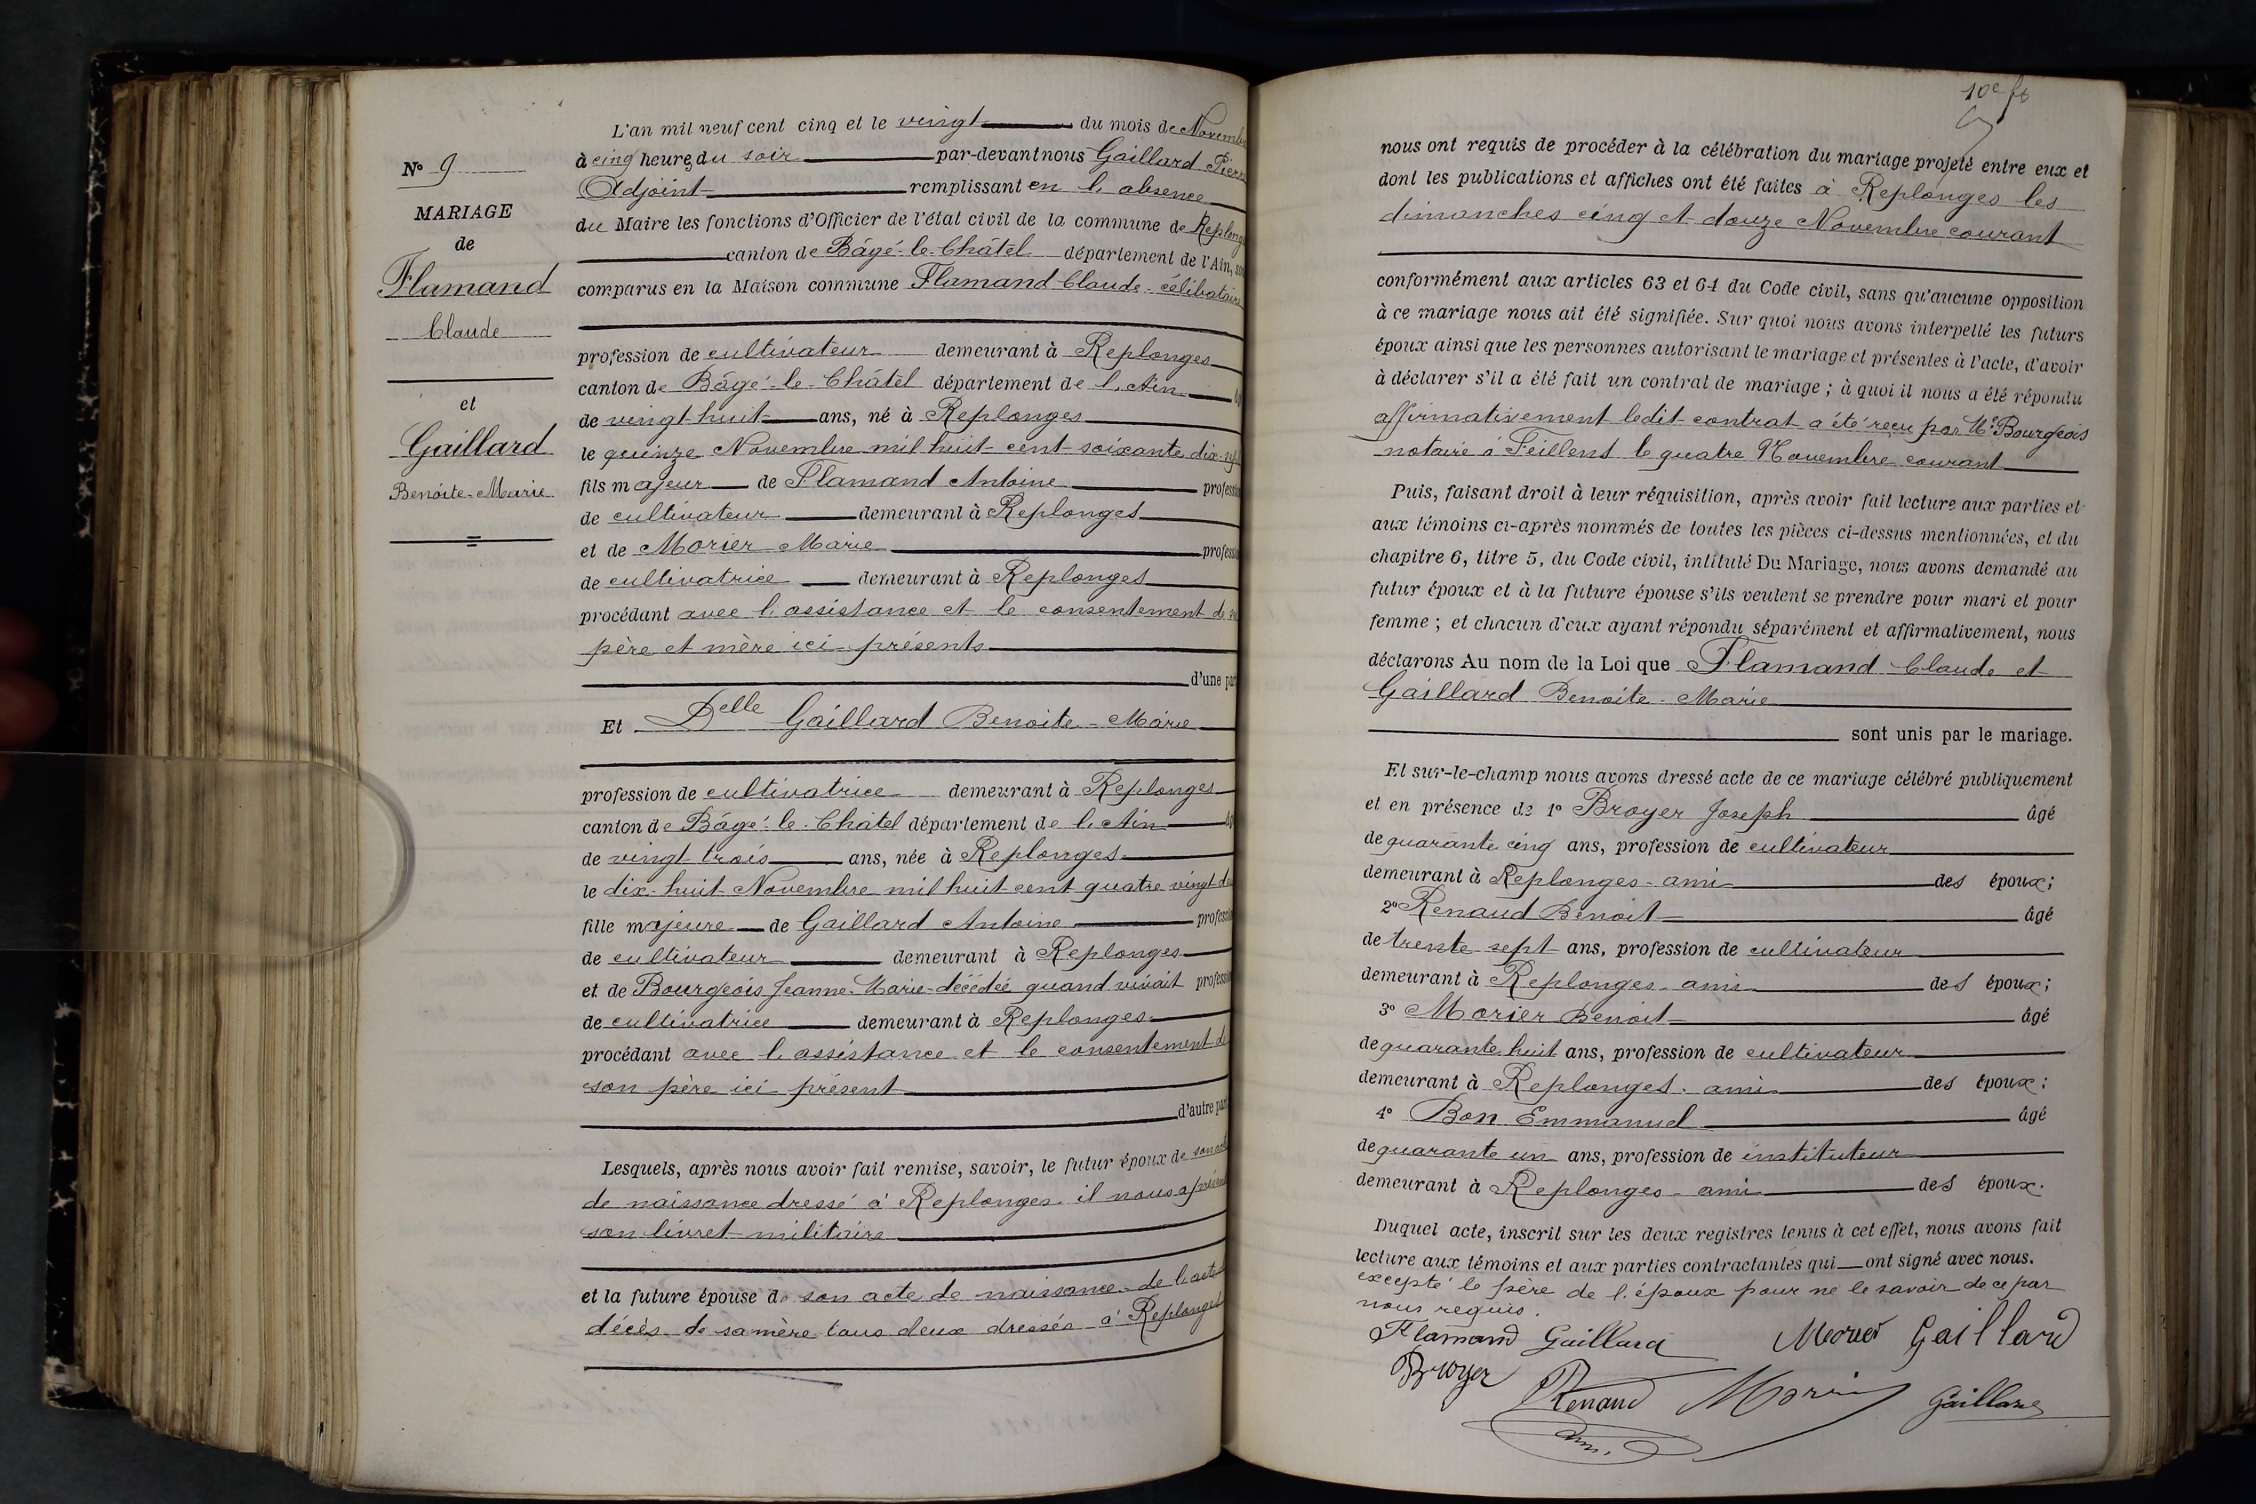 N° 9
MARIAGE
de
Flamand
Claude
et
Gaillard
Benoite-Marie
L'an mil neuf cent cinq et le vingt du mois de Novembre
à cinq heures du soir par-devant nous Gaillard Pierre
Adjoint remplissant en l'absence
du Maire les fonctions d'Officier de l'état civil de la commune de Replonges
canton de Bâgé-le-Châtel département de l'Ain, sont
comparus en la Maison commune Flamand Claude - célibataire
profession de cultivateur demeurant à Replonges
canton de Bâgé-le-Châtel département de l'Ain
de vingt huit ans, né à Replonges
le quinze Novembre mil huit cent soixante dix-sept
fils majeur de Flamand Antoine profession
de cultivateur demeurant à Replonges
et de Morier Marie profession
de cultivatrice demeurant à Replonges
procédant avec l'assistance et le consentement de ses
père et mère ici présents
d'une part
Et Delle Gaillard Benoite-Marie
profession de cultivatrice demeurant à Replonges
canton de Bâgé-le-Châtel département de l'Ain
de vingt trois ans, née à Replonges
le dix-huit Novembre mil huit cent quatre vingt deux
fille majeure de Gaillard Antoine profession
de cultivateur demeurant à Replonges
et de Bourgeois Jeanne-Marie-décédée quand vivait profession
de cultivatrice demeurant à Replonges
procédant avec l'assistance et le consentement de
son père ici présent
d'autre part
Lesquels, après nous avoir fait remise, savoir, le futur époux de son acte
de naissance dressé à Replonges. il nous a présenté
son livret militaire
et la future épouse de son acte de naissance - de l'acte
décès de sa mère tous deux dressés à Replonges
10e ft
nous ont requis de procéder à la célébration du mariage projeté entre eux et
dont les publications et affiches ont été faites à Replonges les
dimanches cinq et douze Novembre courant
conformément aux articles 63 et 64 du Code civil, sans qu'aucune opposition
à ce mariage nous ait été signifiée. Sur quoi nous avons interpellé les futurs
époux ainsi que les personnes autorisant le mariage et présentes à l'acte, d'avoir
à déclarer s'il a été fait un contrat de mariage ; à quoi il nous a été répondu
affirmativement ledit contrat a été reçu par Me Bourgeois
notaire à Feillens le quatre Novembre courant
Puis, faisant droit à leur réquisition, après avoir fait lecture aux parties et
aux témoins ci-après nommés de toutes les pièces ci-dessus mentionnées, et du
chapitre 6, titre 5, du Code civil, intitulé Du Mariage, nous avons demandé au
futur époux et à la future épouse s'ils veulent se prendre pour mari et pour
femme ; et chacun d'eux ayant répondu séparément et affirmativement, nous
déclarons Au nom de la Loi que Flamand Claude et
Gaillard Benoite-Marie
sont unis par le mariage.
Et sur-le-champ nous avons dressé acte de ce mariage célébré publiquement
et en présence de 1° Broyer Joseph âgé
de quarante cinq ans, profession de cultivateur
demeurant à Replonges - ami des époux;
2° Renaud Benoit âgé
de trente sept ans, profession de cultivateur
demeurant à Replonges - ami des époux;
3° Morier Benoit âgé
de quarante huit ans, profession de cultivateur
demeurant à Replonges - ami des époux;
4° Bon Emmanuel âgé
de quarante un ans, profession de instituteur
demeurant à Replonges - ami des époux.
Duquel acte, inscrit sur les deux registres tenus à cet effet, nous avons fait
lecture aux témoins et aux parties contractantes qui ont signé avec nous.
excepté le père de l'époux pour ne le savoir de ce par
nous requis.
Flamand Gaillard Morier Gaillard
Broyer Renaud Morier Gaillard